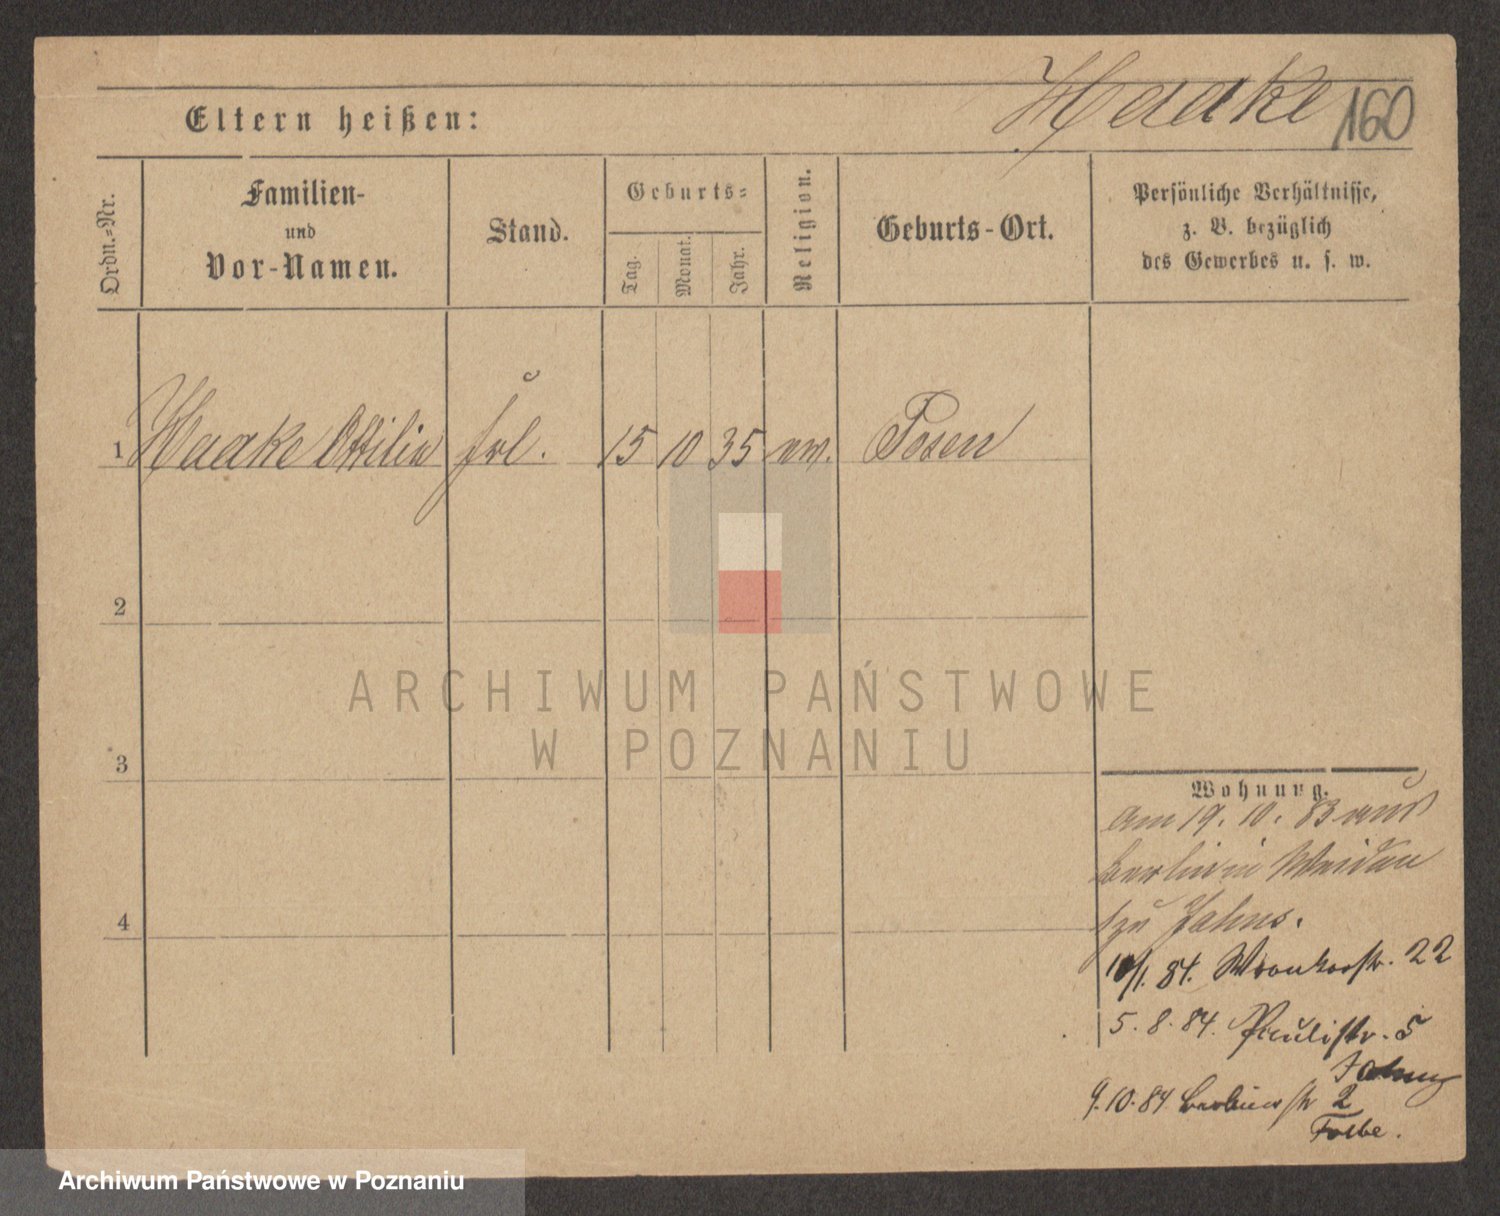 Haake 160
Eltern heißen:
Ordn.-Nr.
Familien-
und
Vor-Namen.
Stand.
Geburts-
Tag.
Monat.
Jahr.
Religion.
Geburts-Ort.
Persönliche Verhältnisse,
z. B. bezüglich
des Gewerbes u. s. w.
1 Haake Ottilie frl. 15 10 35 ev. Posen
2
3
4
ARCHIWUM PAŃSTWOWE
W POZNANIU
Wohnung.
Am 19. 10. 83 aus
Berlin in
zu Jahns.
10/1. 84. Wronkerstr. 22
5. 8. 84. Paulistr. 5
9. 10. 84 Berlinerstr 2
Archiwum Państwowe w Poznaniu